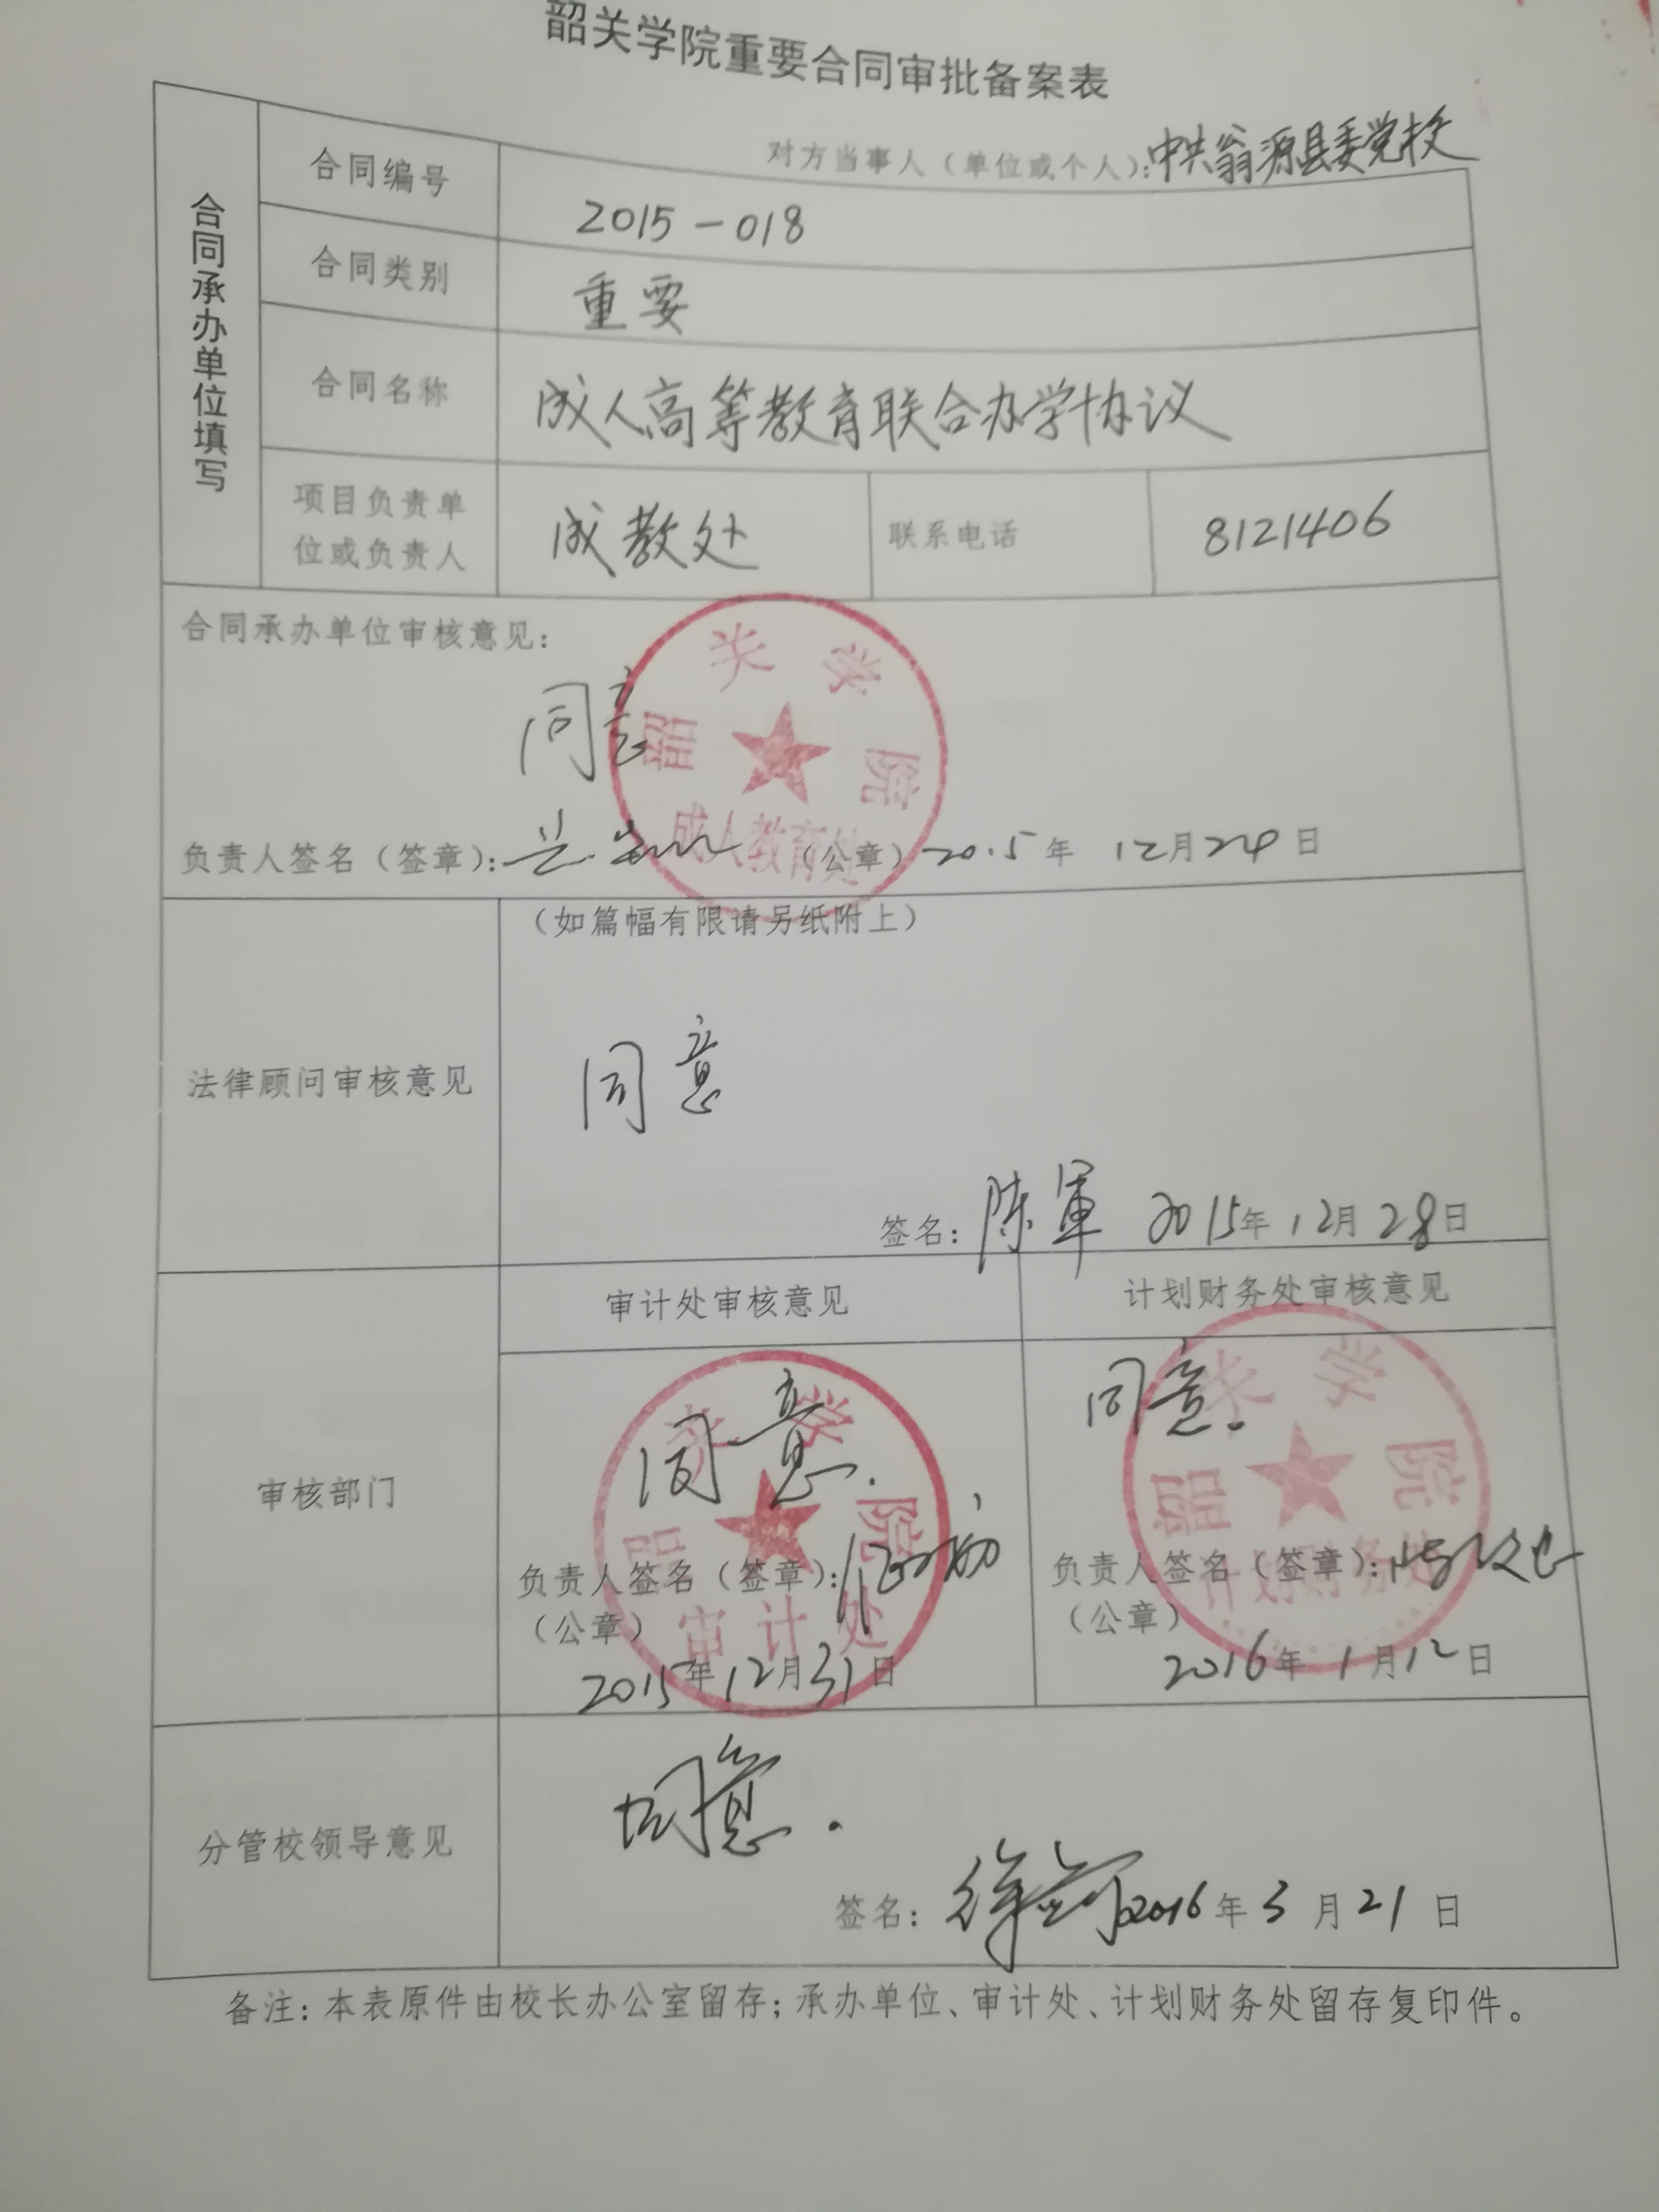 韶关学院重要合同审批备案表
对方当事人（单位或个人）：中共翁源县委党校
合同承办单位填写
合同编号
2015-018
合同类别
重要
合同名称
成人高等教育联合办学协议
项目负责单
位或负责人
成教处
联系电话
8121406
合同承办单位审核意见：
同意
韶关学院
成人教育处
负责人签名（签章）：
（公章）2015年 12月24日
（如篇幅有限请另纸附上）
法律顾问审核意见
同意
签名：陈軍 2015年12月28日
审核部门
审计处审核意见
计划财务处审核意见
同意.
韶关学院
审计处
负责人签名（签章）：
（公章）
2015年12月31日
同意.
韶关学院
计划财务处
负责人签名（签章）：
（公章）
2016年1月12日
分管校领导意见
同意.
签名： 2016年3月21日
备注：本表原件由校长办公室留存；承办单位、审计处、计划财务处留存复印件。